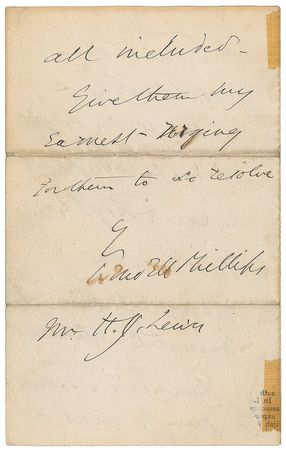 all included –
Give them my
Earnest urging
for them to so resolve
Wendell Phillips
Mr H. J. Lewis